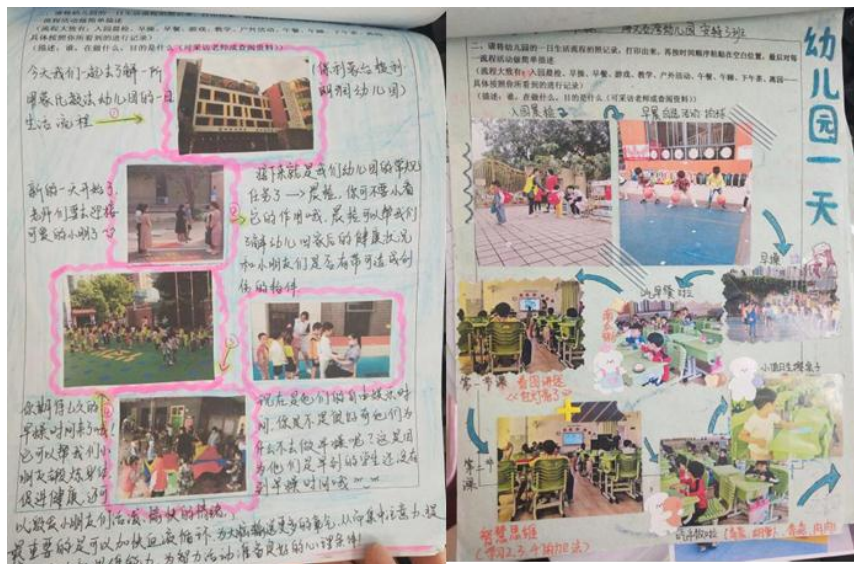 一流程活动做简单描述
(流程大概有:入园晨检、早操、早餐、游戏、教学、户外活动、午餐、午睡、下午茶、离园——
具体按照你所看到的进行记录)
(描述:谁,在做什么,目的是什么(可采访老师或查阅资料))
今天我们一起去了解一所
用蒙氏教法幼儿园的一日
生活流程
①
(保利蒙台梭利
幼儿园)
新的一天开始了,
老师们要去迎接
可爱的小朋友了
②
接下来就是我们幼儿园的常规
任务了→晨检,你可不要小看
它的作用哦,晨检可以帮我们
了解幼儿回家后的健康状况
和小朋友们是否有带可造成创
伤的物件
你期待已久的
早操时间来了哦!
它可以帮我们小
朋友锻炼身体
促进健康,还可
现在是他们的自由娱乐时
间,你是不是很好奇他们为
什么不去做早操呢?这是因
为他们是早到的学生还没有
到早操时间哦
以激发小朋友们活泼、愉快的情绪,
最重要的是可以加快血液循环,为大脑输送更多的氧气,从而集中注意力,提
为智力活动准备良好的心理条件!
幼儿园 实验3班
二、请将幼儿园的一日生活流程拍照记录,打印出来,再按时间顺序粘贴在空白位置,最后对每
一流程活动做简单描述
(流程大概有:入园晨检、早操、早餐、游戏、教学、户外活动、午餐、午睡、下午茶、离园——
具体按照你所看到的进行记录)
(描述:谁,在做什么,目的是什么(可采访老师或查阅资料))
幼儿园一天
入园晨检
早晨自由活动 拍球
早操
吃早餐啦
第一节课 看图讲述
<<红灯看了>>
小值日生擦桌子
第二节课
智慧思维
(学习2,3,4的加法)
吃午饭啦